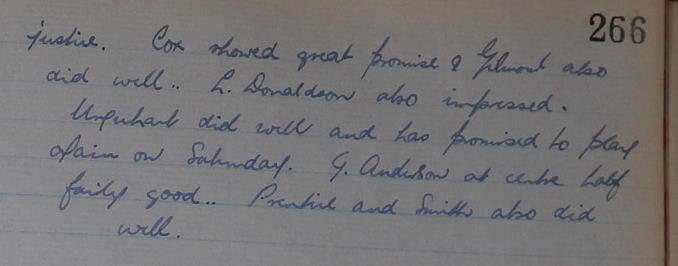 266
justice. Cox showed great promise & Gilmour also
did well.. L. Donaldson also impressed.
Urquhart did well and has promised to play
again on Saturday. G. Anderson at centre half
fairly good.. Prentice and Smith also did
well.